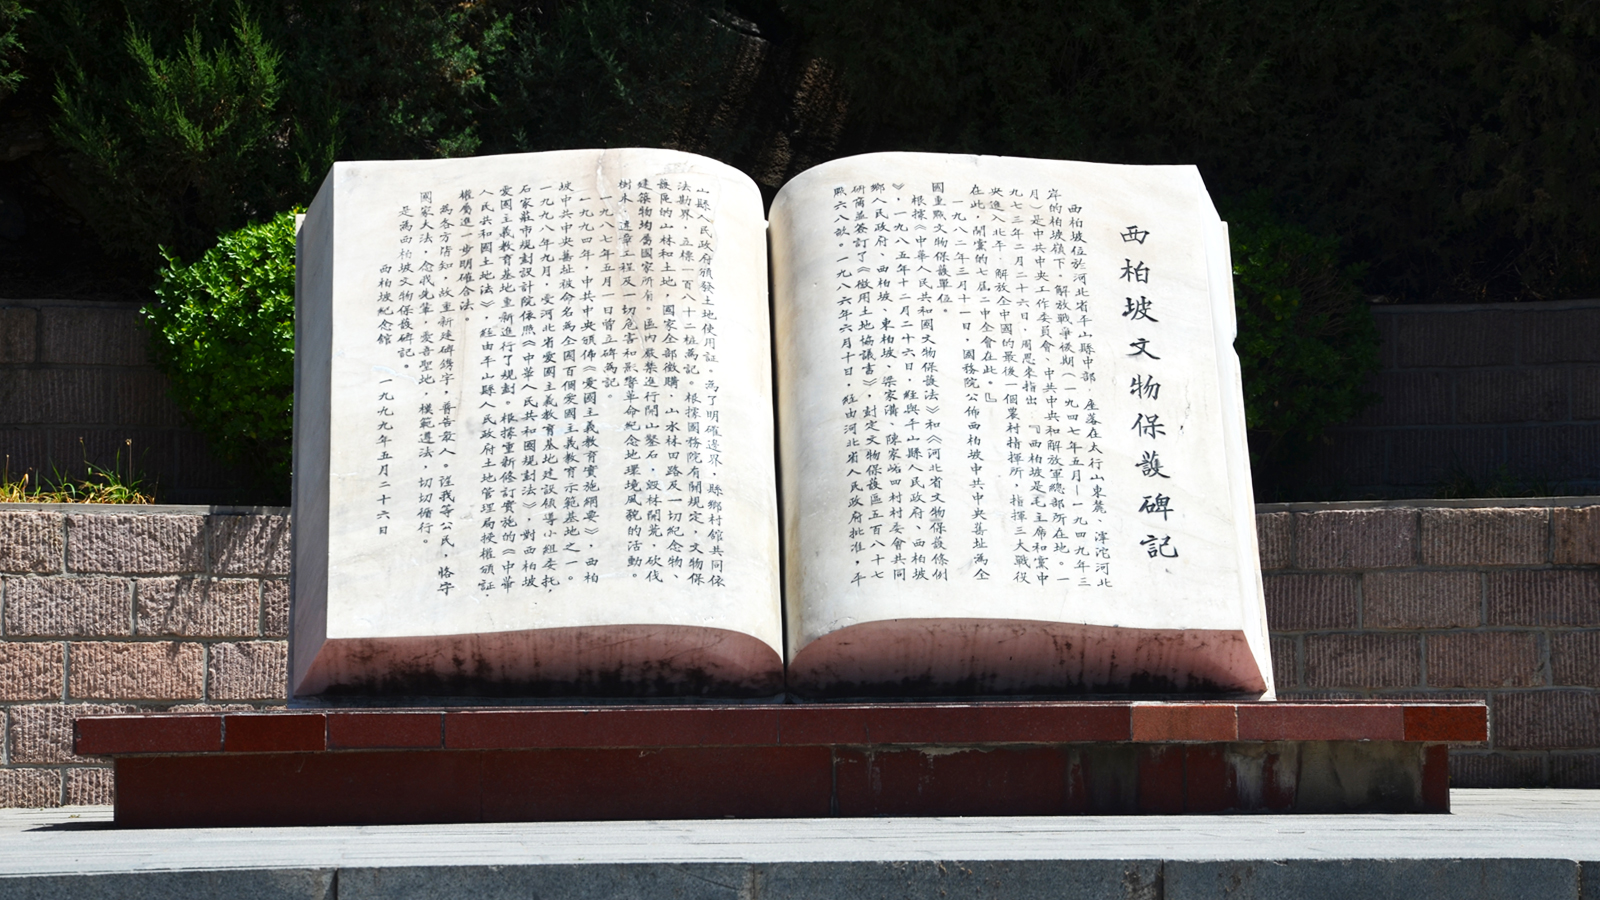 西柏坡文物保護碑記
西柏坡位於河北省平山縣中部，座落在太行山東麓、滹沱河北
岸的柏坡嶺下。解放戰爭後期（一九四七年五月—一九四九年三
月）是中共中央工作委員會、中共中央和解放軍總部所在地。一
九七三年二月二十六日，周恩來指出：『西柏坡是毛主席和黨中
央進入北平，解放全中國的最後一個農村指揮所，指揮三大戰役
在此，開黨的七屆二中全會在此。』
一九八二年三月十一日，國務院公佈西柏坡中共中央舊址為全
國重點文物保護單位。
根據《中華人民共和國文物保護法》和《河北省文物保護條例
》，一九八五年十二月二十六日，經與平山縣人民政府、西柏坡
鄉人民政府、西柏坡、東柏坡、梁家溝、陳家峪四村村委會共同
研商並簽訂了《徵用土地協議書》，封定文物保護區五百八十七
點六八畝。一九八六年六月十日，經由河北省人民政府批准，平
山縣人民政府頒發土地使用証。為了明確邊界，縣鄉村館共同依
法勘界，立標一百八十二樁為記。根據國務院有關規定，文物保
護區的山林和土地，國家全部徵購，山水林田路及一切紀念物、
建築物均屬國家所有。區內嚴禁進行開山鑿石，毀林開荒，砍伐
樹木，違章工程及一切危害和影響革命紀念地環境風貌的活動。
一九八七年五月一日曾立碑為記。
一九九四年，中共中央頒佈《愛國主義教育實施綱要》，西柏
坡中共中央舊址被命名為全國百個愛國主義教育示範基地之一。
一九九八年九月，受河北省愛國主義教育基地建設領導小組委托，
石家莊市規劃設計院依照《中華人民共和國規劃法》，對西柏坡
愛國主義教育基地重新進行了規劃。根據重新修訂實施的《中華
人民共和國土地法》，經由平山縣人民政府土地管理局授權頒証，
權屬進一步明確合法。
為各方皆知，故重新建碑鐫字，普告衆人。詮我等公民，恪守
國家大法，念我先輩，愛吾聖地，模範遵法，切切循行。
是為西柏坡文物保護碑記。
西柏坡紀念館 一九九九年五月二十六日